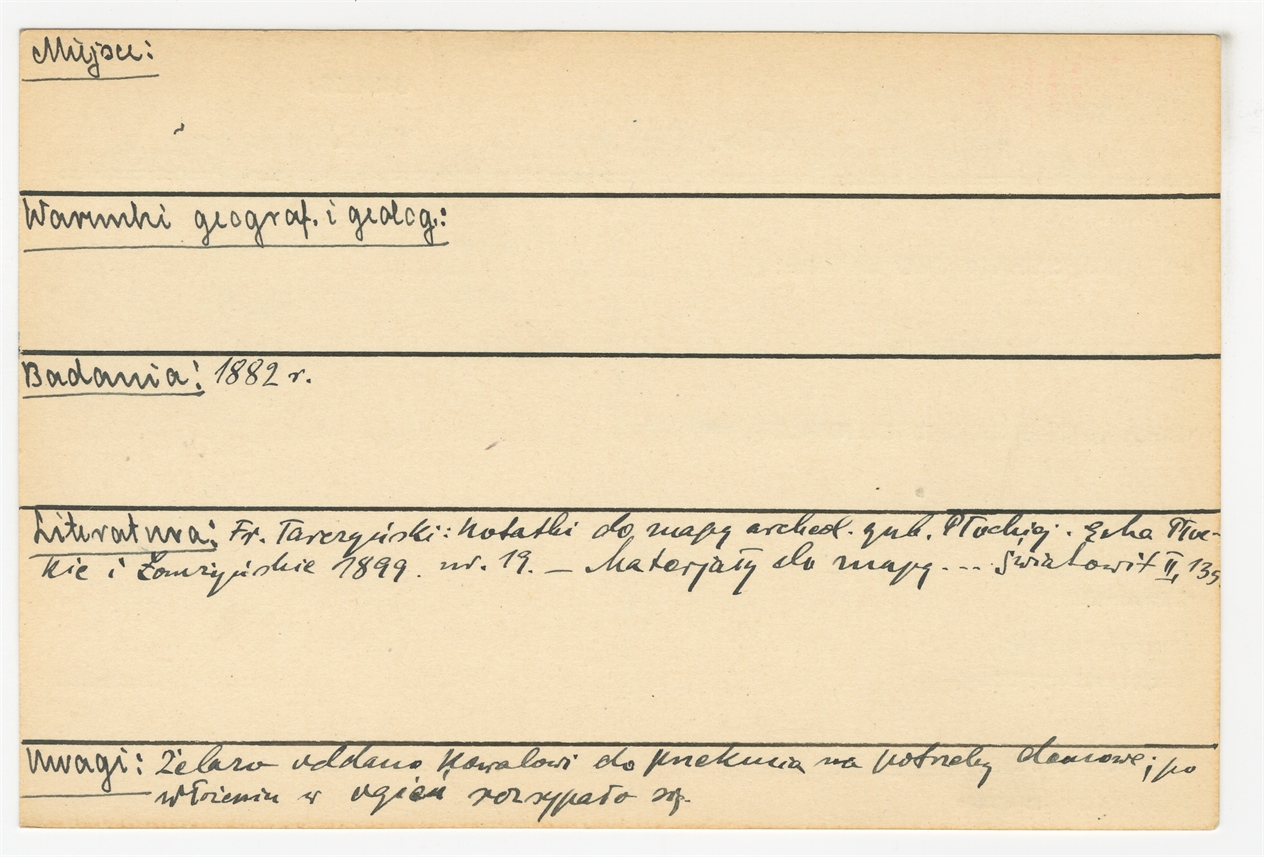 Miejsce:
Warunki geograf. i geolog.:
Badania: 1882 r.
Literatura: Fr. Tarczyński: Notatki do mapy archeol. gub. Płockiej. Echa Płoc-
kie i Łomżyńskie 1899. nr. 19. — Materjały do mapy... Światowit II, 139
Uwagi: Żelazo oddano kowalowi do przekucia na potrzeby domowe; po
włożeniu w ogień rozsypało się.